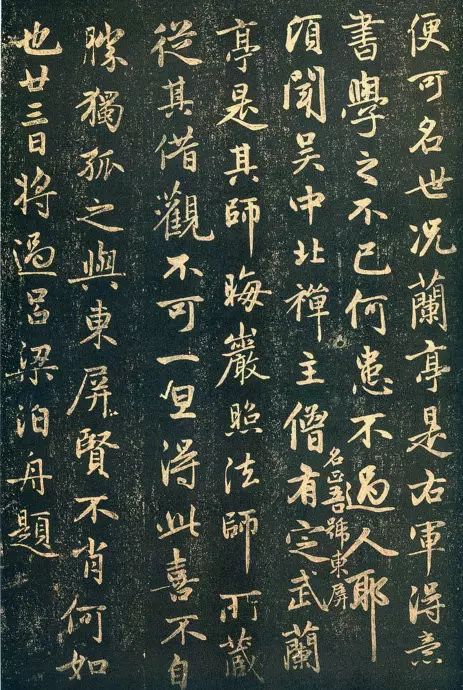 便可名世况蘭亭是右軍得意
書學之不已何患不過人耶
頃聞吳中北禪主僧有定武蘭
名正吾號東屏
亭是其師晦巖照法師所藏
從其借觀不可一旦得此喜不自
勝獨孤之與東屏賢不肖何如
也廿三日將過呂梁泊舟題